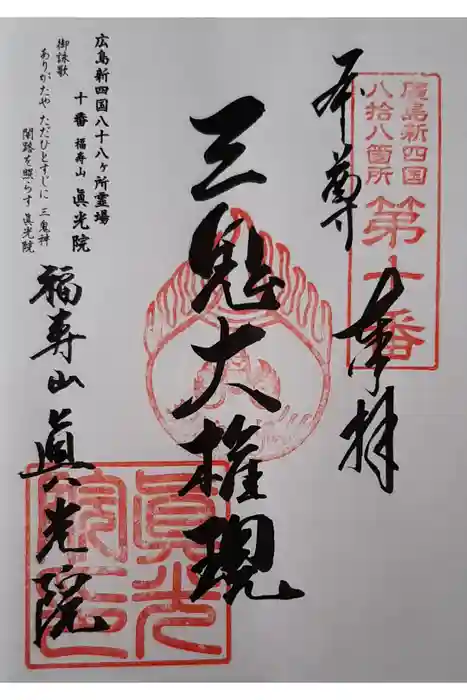 廣島新四国
八拾八箇所
第十番
本尊
奉拝
三鬼大権現
広島新四国八十八ヶ所霊場
十番 福寿山 眞光院
御詠歌
ありがたや ただひとすじに 三鬼神
闇路を照らす 眞光院
福寿山 眞光院
眞光
院